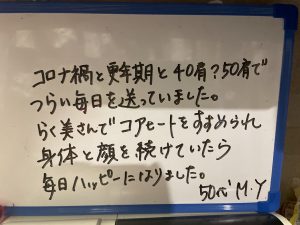 コロナ禍と更年期と40肩?50肩で
つらい毎日を送っていました。
らく美さんでコアヒートをすすめられ
身体と顔を続けていたら
毎日ハッピーになりました。
50代 M.Y